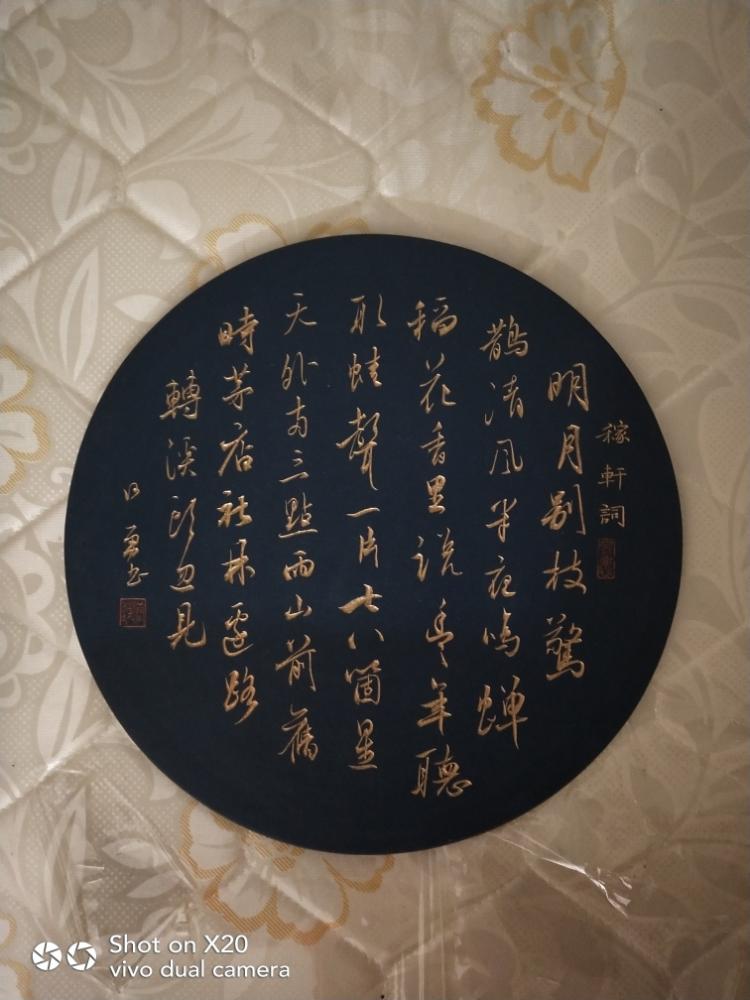 稼軒詞
明月别枝驚
鵲清风半夜鳴蝉
稻花香里说豐年聽
取蛙聲一片七八箇星
天外两三點雨山前舊
時茅店社林邊路
轉溪頭忽見
書